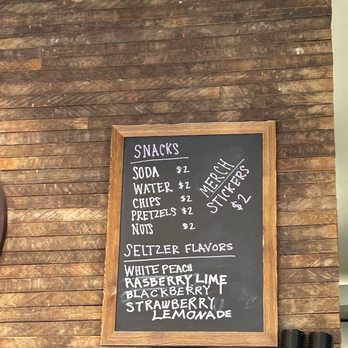 SNACKS
SODA $2
WATER $2
CHIPS $2
PRETZELS $2
NUTS $2
MERCH
STICKERS
$2
SELTZER FLAVORS
WHITE PEACH
RASBERRY LIME
BLACKBERRY
STRAWBERRY
LEMONADE